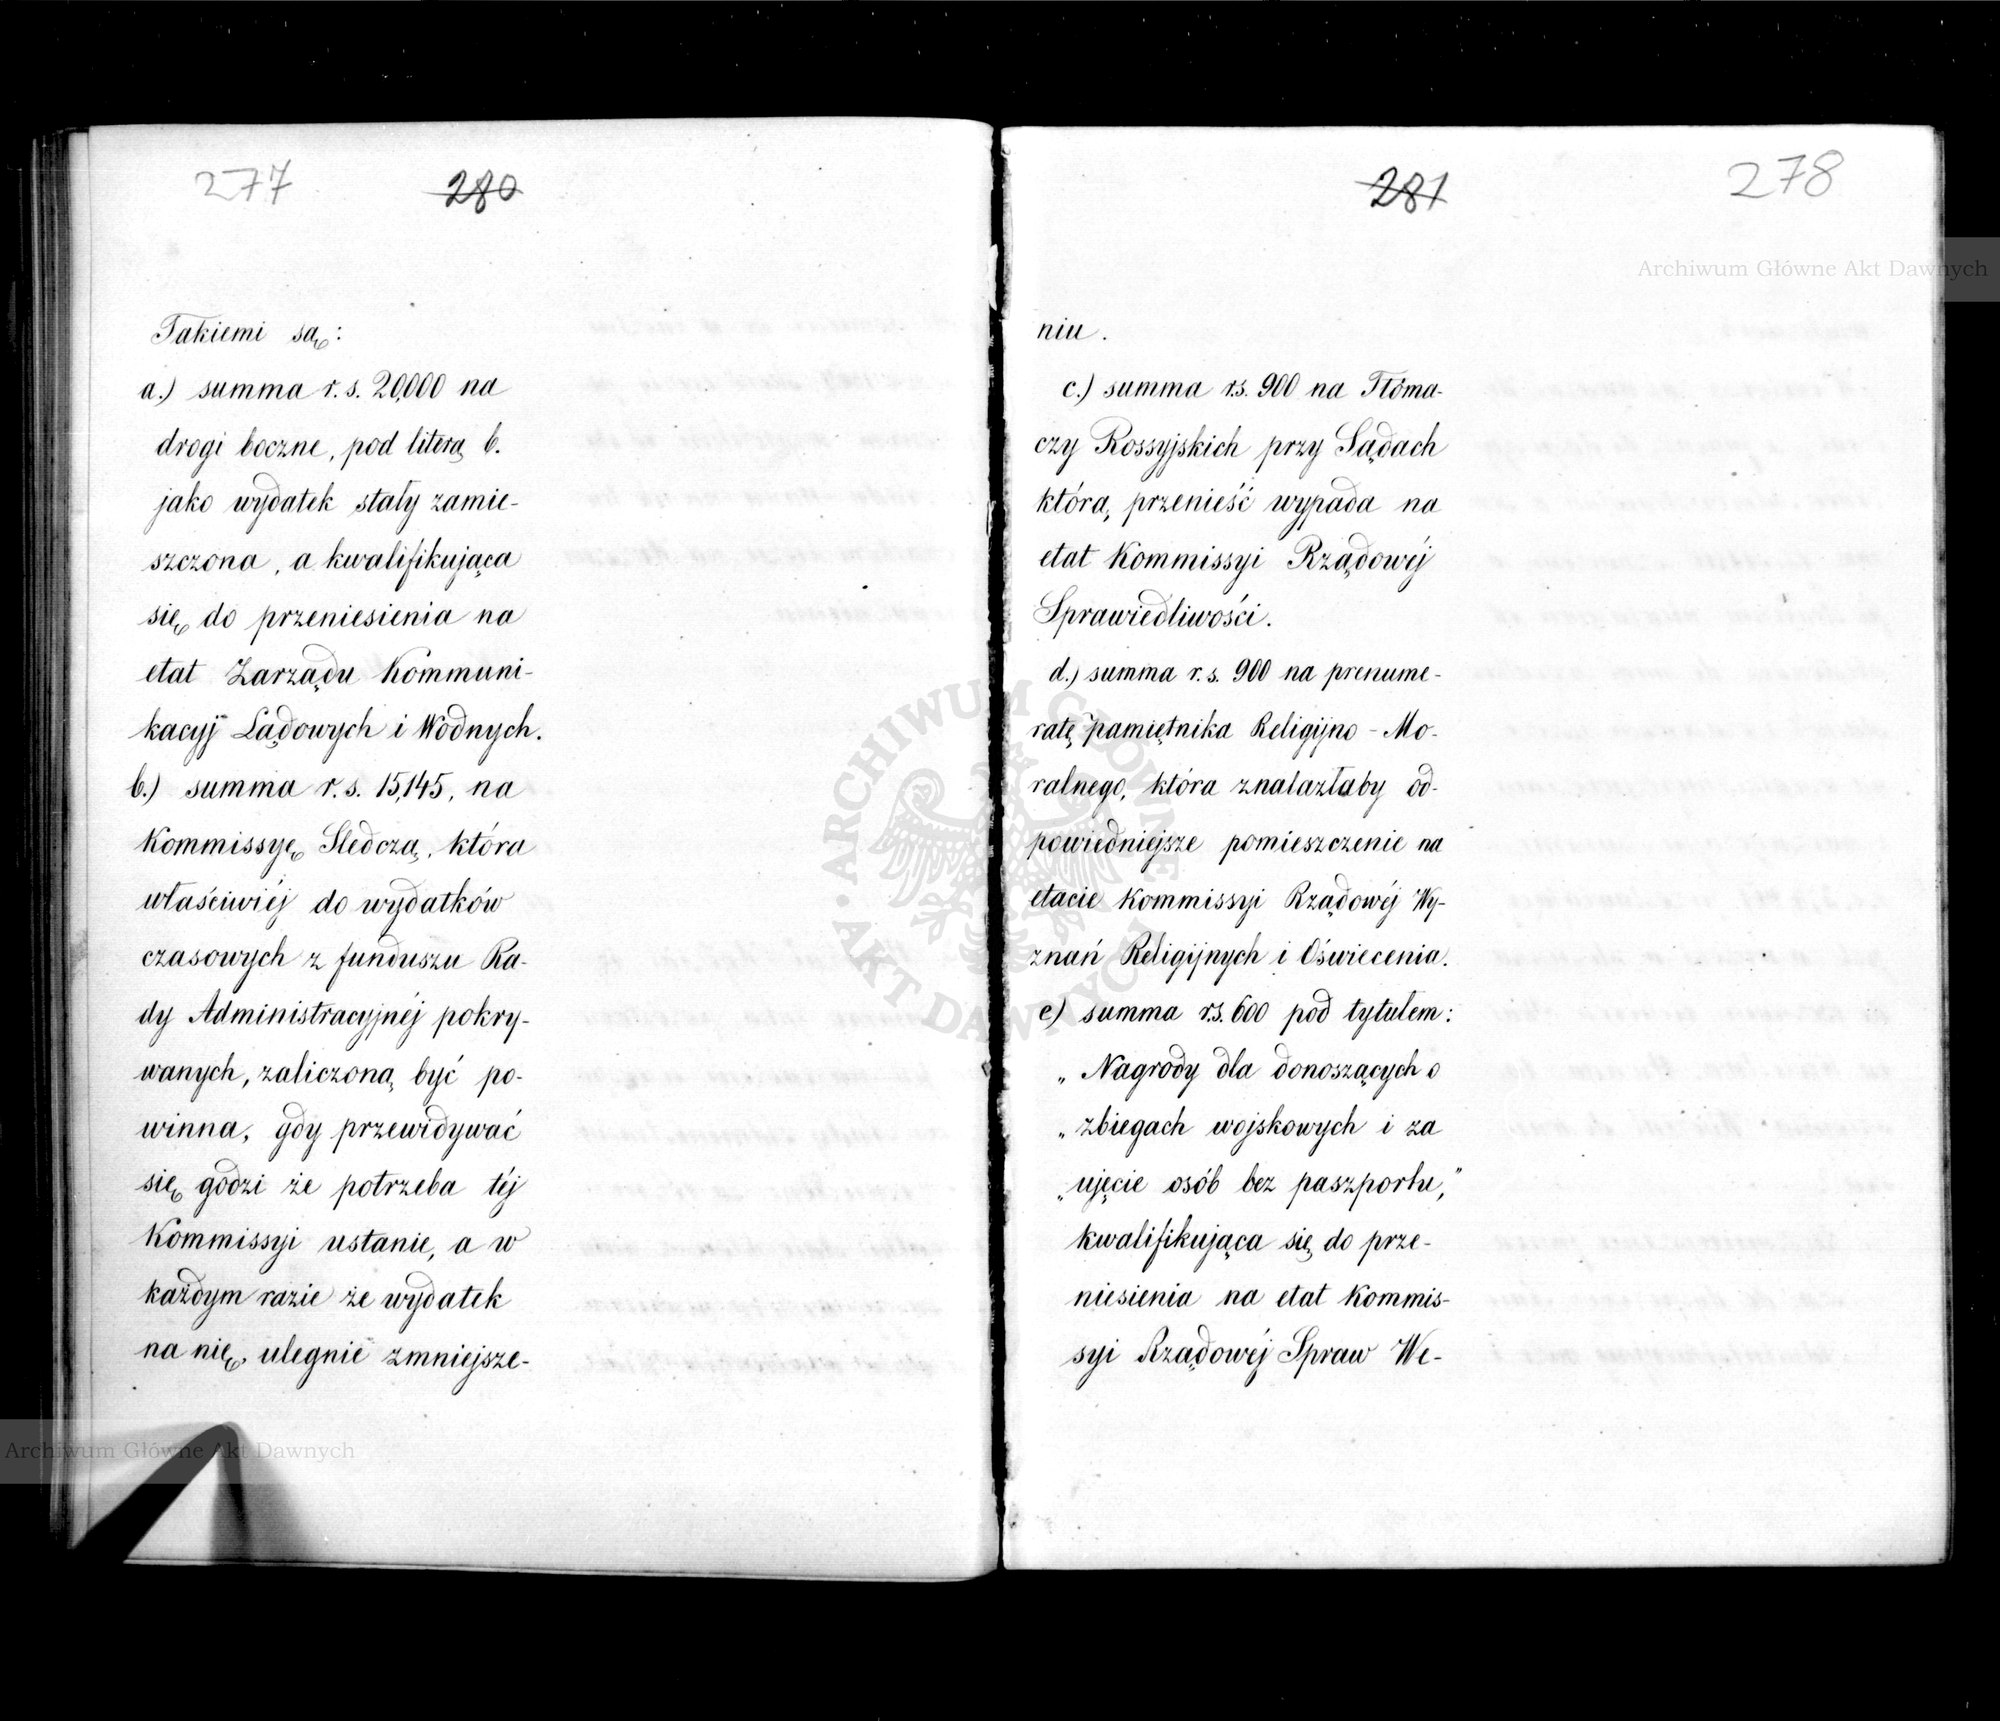 277
280
Takiemi są:
a.) summa r. s. 20,000 na
drogi boczne, pod literą b.
jako wydatek stały zamie-
szczona, a kwalifikująca
się do przeniesienia na
etat Zarządu Kommuni-
kacyj Lądowych i Wodnych.
b.) summa r. s. 15,145, na
Kommissyę Sledczą, która
właściwiéj do wydatków
czasowych z funduszu Ra-
dy Administracyjnéj pokry-
wanych, zaliczoną być po-
winna, gdy przewidywać
się godzi że potrzeba téj
Kommissyi ustanie, a w
każdym razie że wydatek
na nię, ulegnie zmniejsze-
281
278
niu.
c.) summa rs. 900 na Tłóma-
czy Rossyjskich przy Sądach
którą, przenieść wypada na
etat Kommissyi Rządowéj
Sprawiedliwości.
d.) summa r. s. 900 na prenume-
ratę pamiętnika Religijno-Mo-
ralnego, która znalazłaby od-
powiedniejsze pomieszczenie na
etacie Kommissyi Rządowéj Wy-
znań Religijnych i Oświecenia.
e) summa rs. 600 pod tytułem:
„Nagrody dla donoszących o
„zbiegach wojskowych i za
„ujęcie osób bez paszportu,"
kwalifikująca się do prze-
niesienia na etat Kommis-
syi Rządowéj Spraw We-
Archiwum Główne Akt Dawnych
Archiwum Główne Akt Dawnych
ARCHIWUM GŁÓWNE AKT DAWNYCH